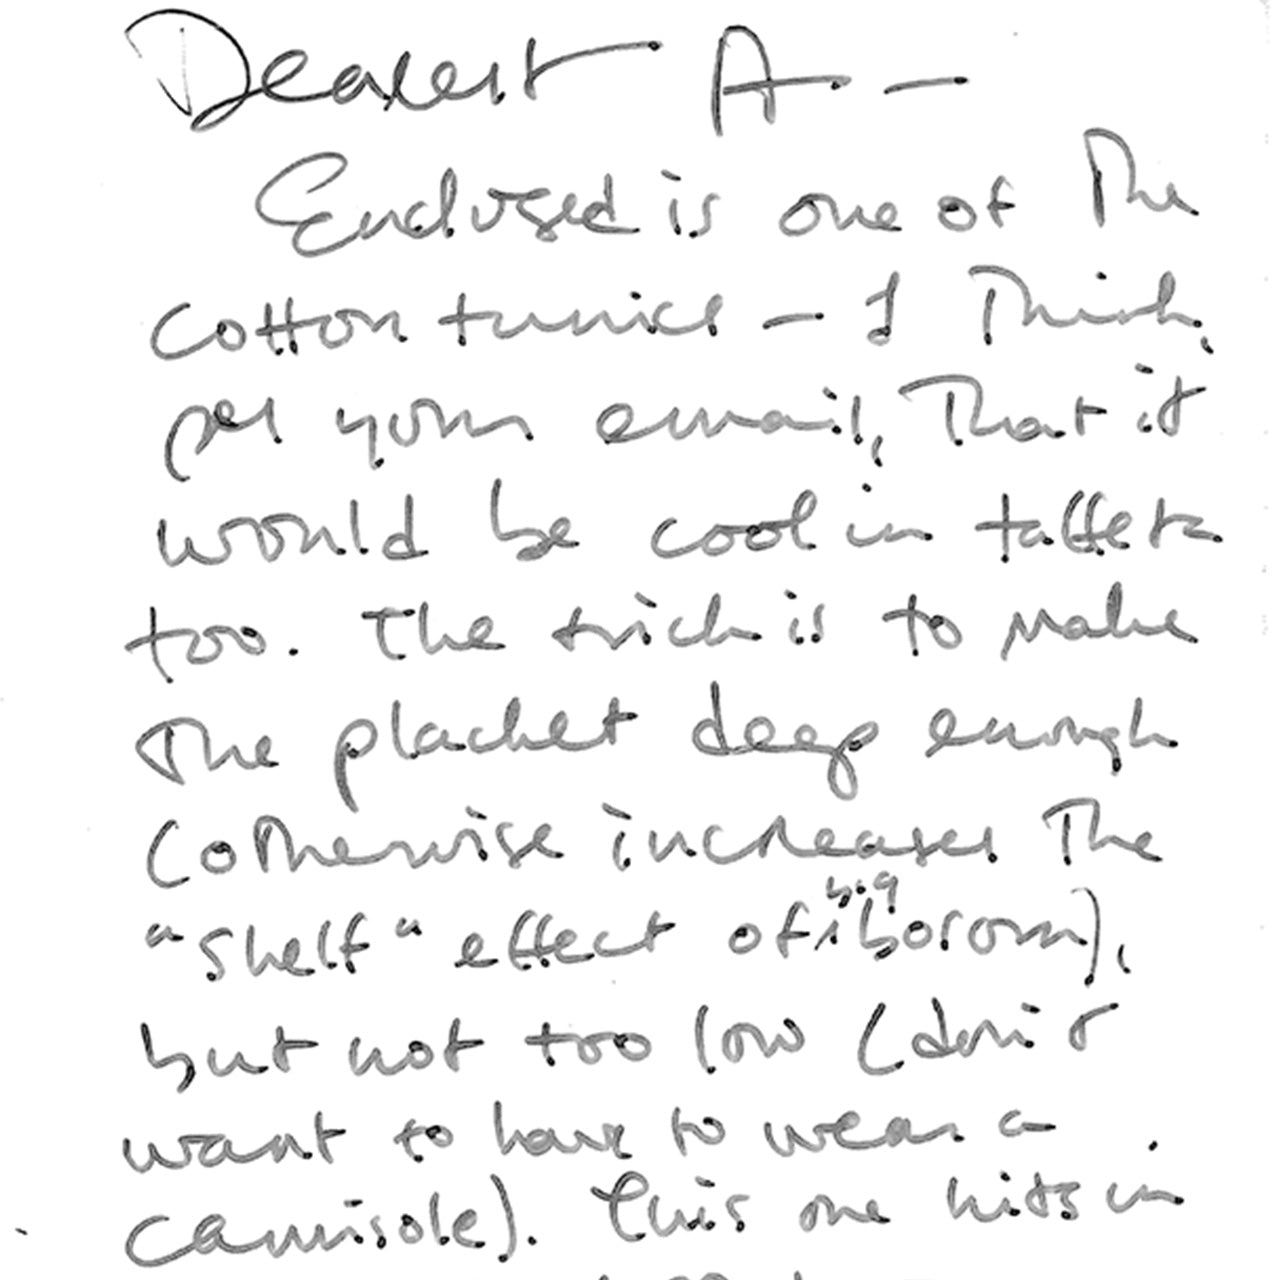 Dearest A —
Enclosed is one of the
cotton tunics — I think,
per your email, that it
would be cool in taffeta
too. The trick is to make
the placket deep enough
(otherwise increases the
"shelf" effect of big bosom),
but not too low (don't
want to have to wear a
camisole). This one hits in